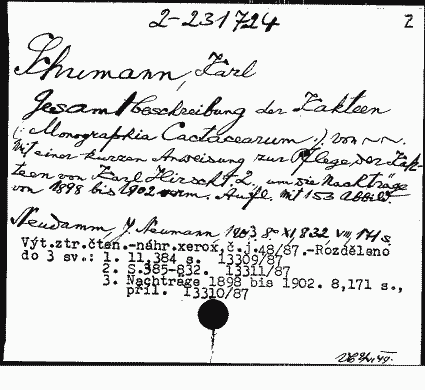 2-231724 2
Schumann, Karl
Gesamtbeschreibung der Kakteen
(: Monographia Cactacearum :) von ~~.
Mit einer kurzen Anweisung zur Pflege der Kak-
teen von Karl Hirscht. 2. um die Nachträge
von 1898 bis 1902 verm. Aufl. Mit 153 Abbild.
Neudamm, J. Neumann 1903. 8° XI, 832, VIII, 171 s.
Výt.ztr.čten.-náhr.xerox.č.j.48/87.-Rozděleno
do 3 sv.: 1. 11,384 s. 13309/87
2. S.385-832. 13311/87
3. Nachträge 1898 bis 1902. 8,171 s.,
příl. 13310/87